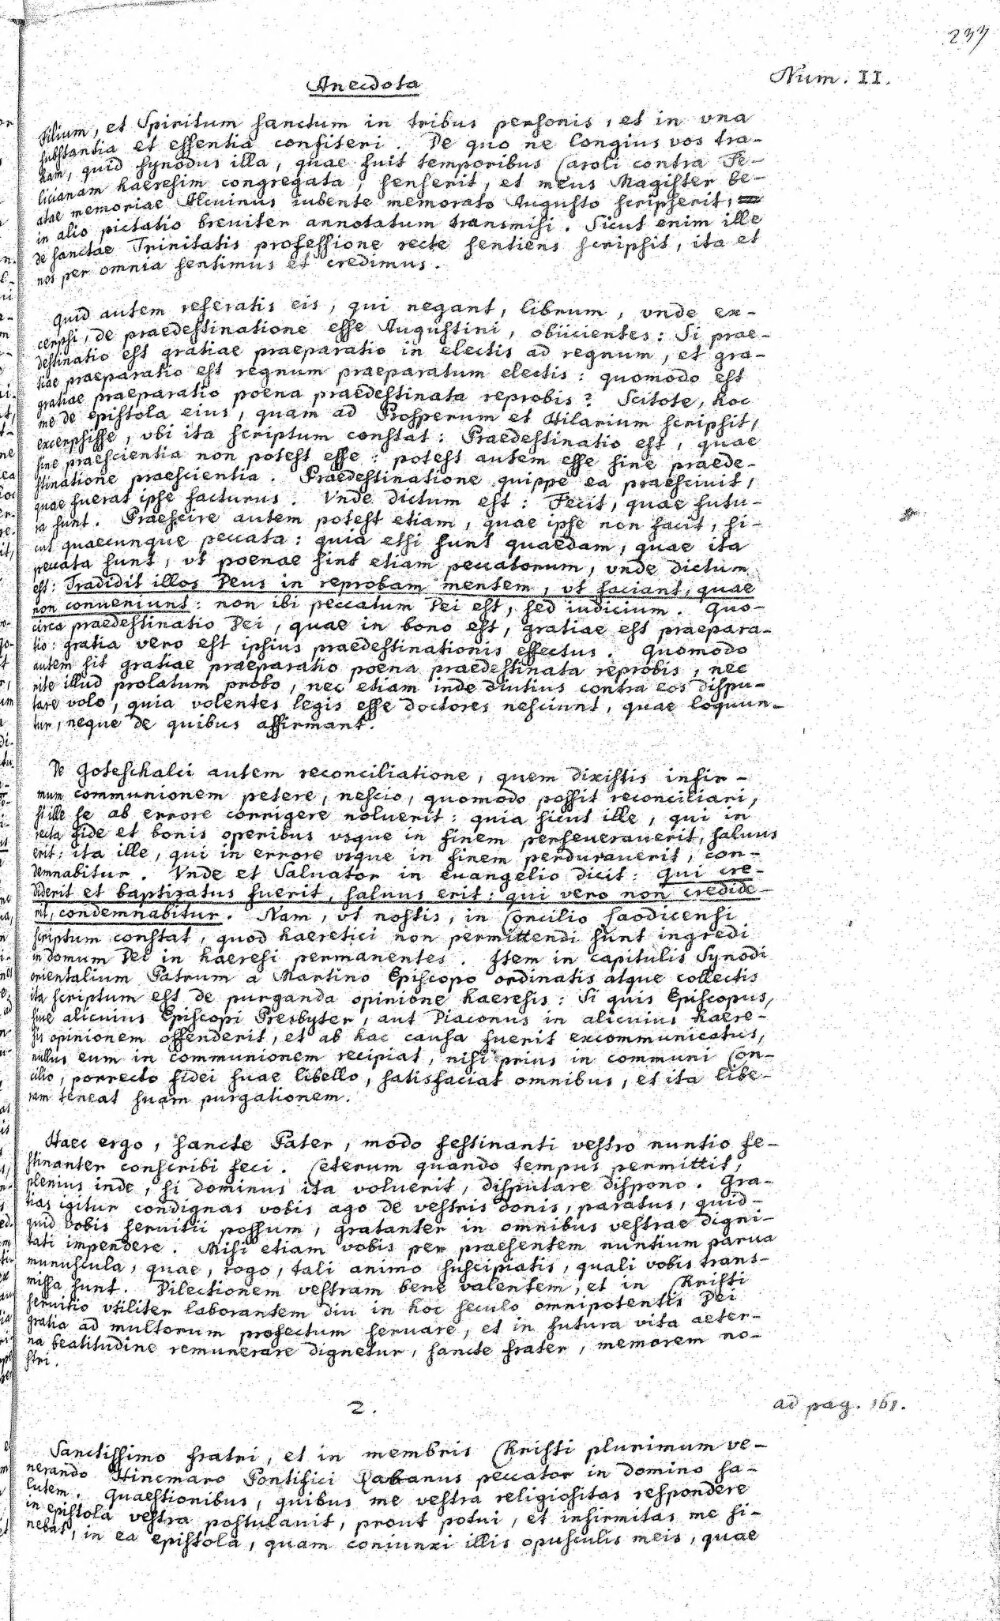 237
Anecdota
Num. II.
Filium, et Spiritum sanctum in tribus personis, et in vna
substantia et essentia confiteri. De quo ne longius vos tra-
ham, quid synodus illa, quae fuit temporibus Caroli contra Fe-
licianam haeresim congregata, senserit, et meus Magister be-
atae memoriae Alcuinus iubente memorato Augusto scripserit,
in alio pictatio breuiter annotatum transmisi. Sicut enim ille
de sanctae Trinitatis professione recte sentiens scripsit, ita et
nos per omnia sentimus et credimus.
Quid autem referatis eis, qui negant, librum, vnde ex-
cerpsi, de praedestinatione esse Augustini, obiicientes: Si prae-
destinatio est gratiae praeparatio in electis ad regnum, et gra-
tiae praeparatio est regnum praeparatum electis: quomodo est
gratiae praeparatio poena praedestinata reprobis? Scitote, hoc
me de epistola eius, quam ad Prosperum et Hilarium scripsit,
excerpsisse, vbi ita scriptum constat: Praedestinatio est, quae
sine praescientia non potest esse: potest autem esse sine praede-
stinatione praescientia. Praedestinatione quippe ea praesciuit,
quae fuerat ipse facturus. Vnde dictum est: Fecit, quae futu-
ra sunt. Praescire autem potest etiam, quae ipse non facit, si-
cut quaecunque peccata: quia etsi sunt quaedam, quae ita
peccata sunt, vt poenae sint etiam peccatorum, vnde dictum
est: Tradidit illos Deus in reprobam mentem, vt faciant, quae
non conueniunt: non ibi peccatum Dei est, sed iudicium. Quo-
circa praedestinatio Dei, quae in bono est, gratiae est praepara-
tio: gratia vero est ipsius praedestinationis effectus. Quomodo
autem sit gratiae praeparatio poena praedestinata reprobis, nec
rite illud prolatum probo, nec etiam inde diutius contra eos dispu-
tare volo, quia volentes legis esse doctores nesciunt, quae loquun-
tur, neque de quibus affirmant.
De Goteschalci autem reconciliatione, quem dixistis infir-
mum communionem petere, nescio, quomodo possit reconciliari,
si ille se ab errore corrigere noluerit: quia sicut ille, qui in
recta fide et bonis operibus vsque in finem perseuerauerit, saluus
erit: ita ille, qui in errore vsque in finem perdurauerit, con-
demnabitur. Vnde et Saluator in euangelio dicit: Qui cre-
diderit et baptizatus fuerit, saluus erit: qui vero non credide-
rit, condemnabitur. Nam, vt nostis, in Concilio Laodicensi
scriptum constat, quod haeretici non permittendi sunt ingredi
in domum Dei in haeresi permanentes. Item in capitulis Synodi
orientalium Patrum a Martino Episcopo ordinatis atque collectis
ita scriptum est de purganda opinione haeresis: Si quis Episcopus,
siue alicuius Episcopi Presbyter, aut Diaconus in alicuius haere-
sis opinionem offenderit, et ab hac causa fuerit excommunicatus,
nullus eum in communionem recipiat, nisi prius in communi Con-
cilio, porrecto fidei suae libello, satisfaciat omnibus, et ita libe-
ram teneat suam purgationem.
Haec ergo, sancte Pater, modo festinanti vestro nuntio fe-
stinanter conscribi feci. Ceterum quando tempus permittit,
plenius inde, si dominus ita voluerit, disputare dispono. Gra-
tias igitur condignas vobis ago de vestris donis, paratus, quid-
quid vobis seruitii possum, gratanter in omnibus vestrae digni-
tati impendere. Misi etiam vobis per praesentem nuntium parua
munuscula, quae, rogo, tali animo suscipiatis, quali vobis trans-
missa sunt. Dilectionem vestram bene valentem, et in Christi
seruitio vtiliter laborantem diu in hoc seculo omnipotentis Dei
gratia ad multorum profectum seruare, et in futura vita aeter-
na beatitudine remunerare dignetur, sancte frater, memorem no-
stri.
2.
ad pag. 161.
Sanctissimo fratri, et in membris Christi plurimum ve-
nerando Hincmaro Pontifici Rabanus peccator in domino sa-
lutem. Quaestionibus, quibus me vestra religiositas respondere
in epistola vestra postulauit, prout potui, et infirmitas me si-
nebat, in ea epistola, quam coniunxi illis opusculis meis, quae